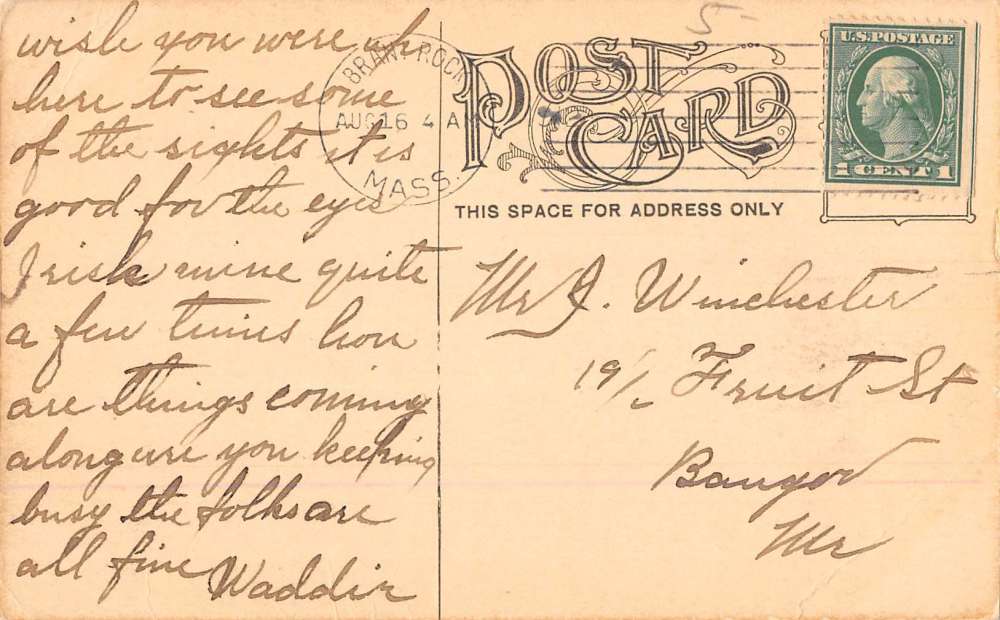 wish you were uh
here to see some
of the sights it is
good for the eyes
I risk mine quite
a few times how
are things coming
along are you keeping
busy the folks are
all fine Waddie
5-
BRANT ROCK
AUG 16 4 A
MASS.
POST CARD
U.S. POSTAGE
1 CENT 1
THIS SPACE FOR ADDRESS ONLY
Mr J. Winchester
Fruit St
Bangor
Me